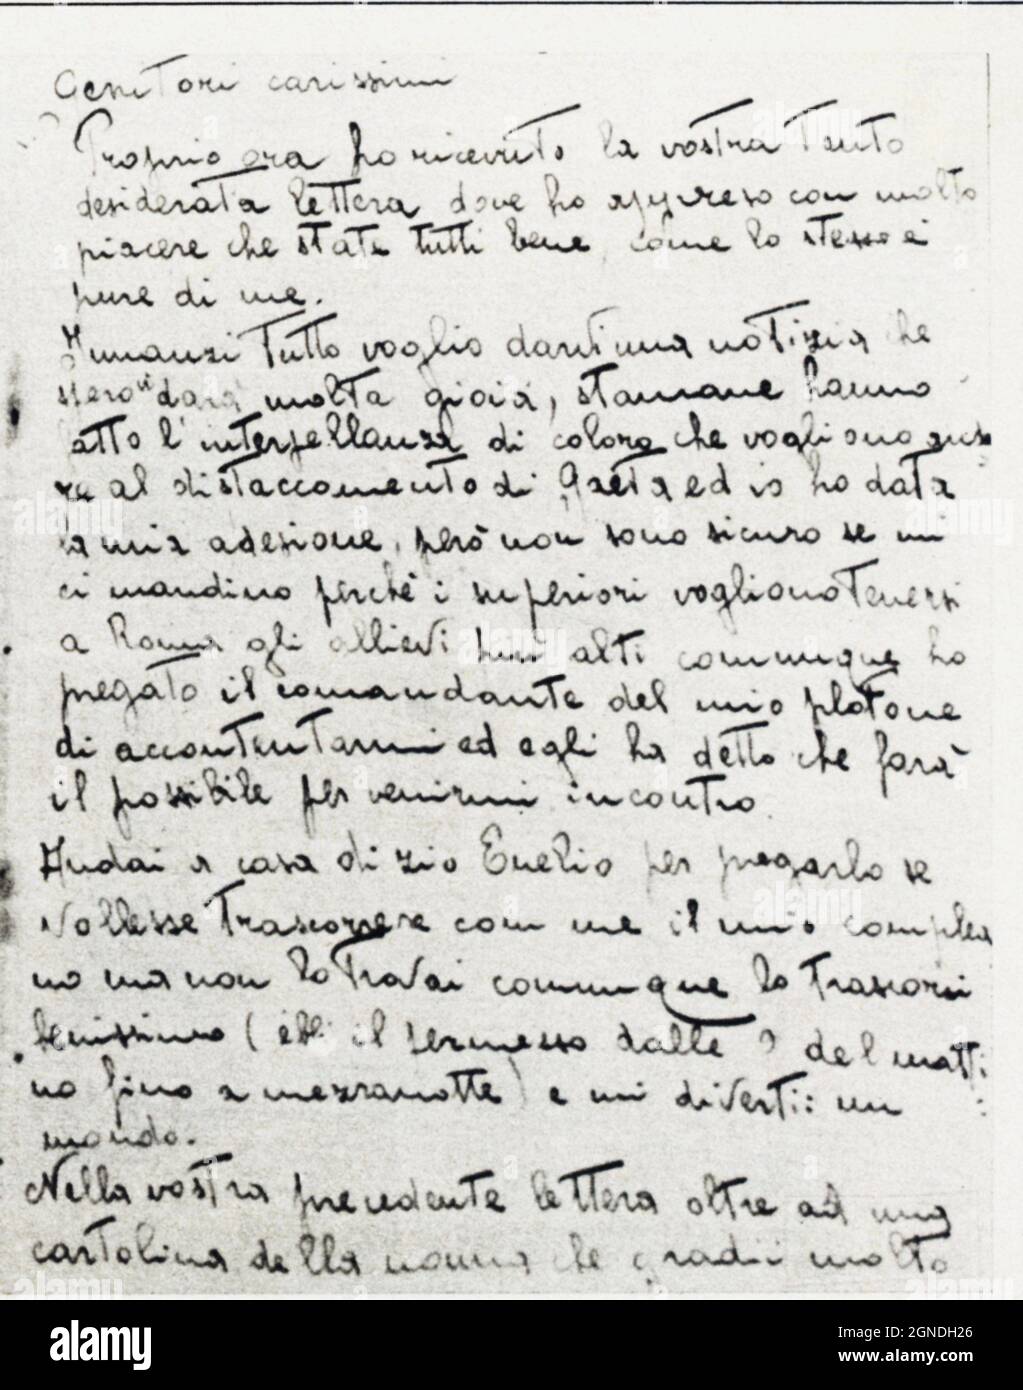 Genitori carissimi
Proprio ora ho ricevuto la vostra tanto
desiderata lettera dove ho appreso con molto
piacere che state tutti bene, come lo stesso è
pure di me.
Innanzi tutto voglio darvi una notizia che
spero vi darà molta gioia, stamane hanno
fatto l'interpellanza di coloro che vogliono anda
re al distaccamento di Gaeta ed io ho data
la mia adesione, però non sono sicuro se mi
ci mandino perché i superiori vogliono tenersi
a Roma gli allievi più alti comunque ho
pregato il comandante del mio plotone
di accontentarmi ed egli ha detto che farà
il possibile per venirmi incontro.
Andai a casa di zio Evelio per pregarlo se
vollesse trascorrere com me il mio complea
no ma non lo trovai comunque lo trascorsi
benissimo (ebbi il permesso dalle del matti
no fino a mezzanotte) e mi divertii un
mondo.
Nella vostra precedente lettera oltre ad una
cartolina della nonna che gradii molto
alamy
Image ID: 2GNDH26
www.alamy.com